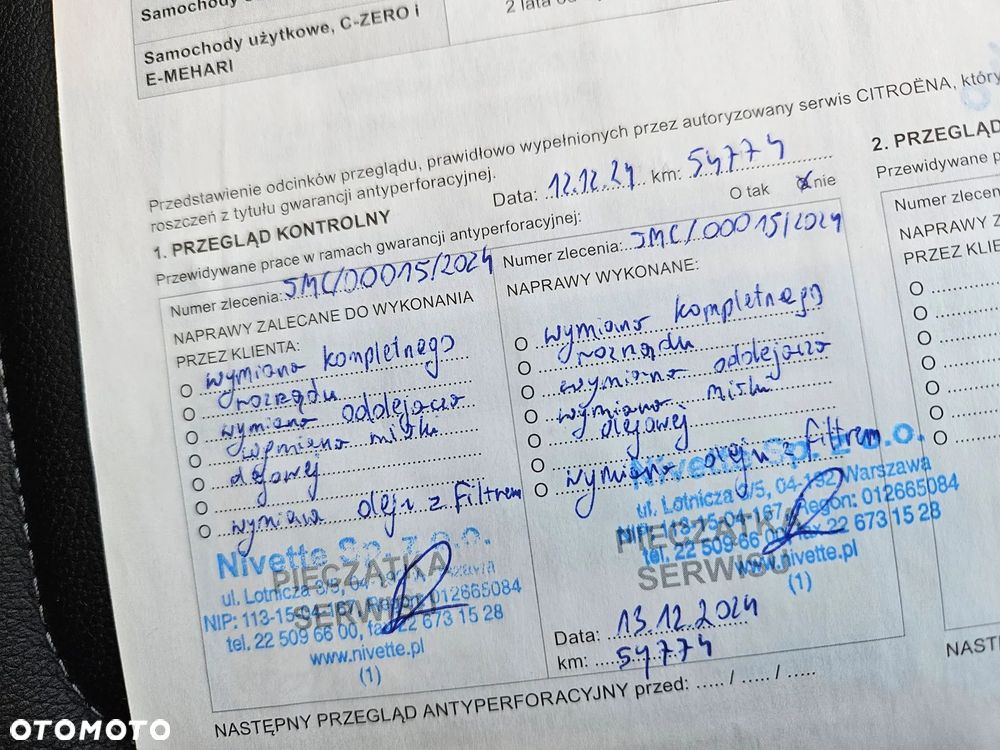 Samochody
2 lata od
Samochody użytkowe, C-ZERO i
E-MEHARI
Przedstawienie odcinków przeglądu, prawidłowo wypełnionych przez autoryzowany serwis CITROËNA, który
roszczeń z tytułu gwarancji antyperforacyjnej.
Data: 12.12.24 km: 54774
1. PRZEGLĄD KONTROLNY
Przewidywane prace w ramach gwarancji antyperforacyjnej:
O tak
nie
Numer zlecenia: JMC/00015/2024
NAPRAWY ZALECANE DO WYKONANIA
PRZEZ KLIENTA:
wymiana kompletnego
rozrządu
wymiana oddolejacza
wymiana miski
olejowej
wymiana oleju z filtrem
Nivette Sp. z o.o.
PIECZĄTKA
ul. Lotnicza 3/5, 04-192 Warszawa
SERWISU
NIP: 113-15-04-167, Regon: 012665084
tel. 22 509 66 00, fax 22 673 15 28
www.nivette.pl
(1)
Numer zlecenia: JMC/00015/2024
NAPRAWY WYKONANE:
wymiana kompletnego
rozrządu
wymiana oddolejacza
wymiana miski
olejowej
wymiana oleju z filtrem
Nivette Sp. z o.o.
ul. Lotnicza 3/5, 04-192 Warszawa
NIP: 113-15-04-167, Regon: 012665084
PIECZĄTKA
tel. 22 509 66 00, fax 22 673 15 28
SERWISU
www.nivette.pl
(1)
Data: 13.12.2024
km: 54774
NASTĘPNY PRZEGLĄD ANTYPERFORACYJNY przed: ..... / ..... / .....
2. PRZEGLĄD
Przewidywane p
Numer zlecen
NAPRAWY Z
PRZEZ KLIE
NAST
OTOMOTO